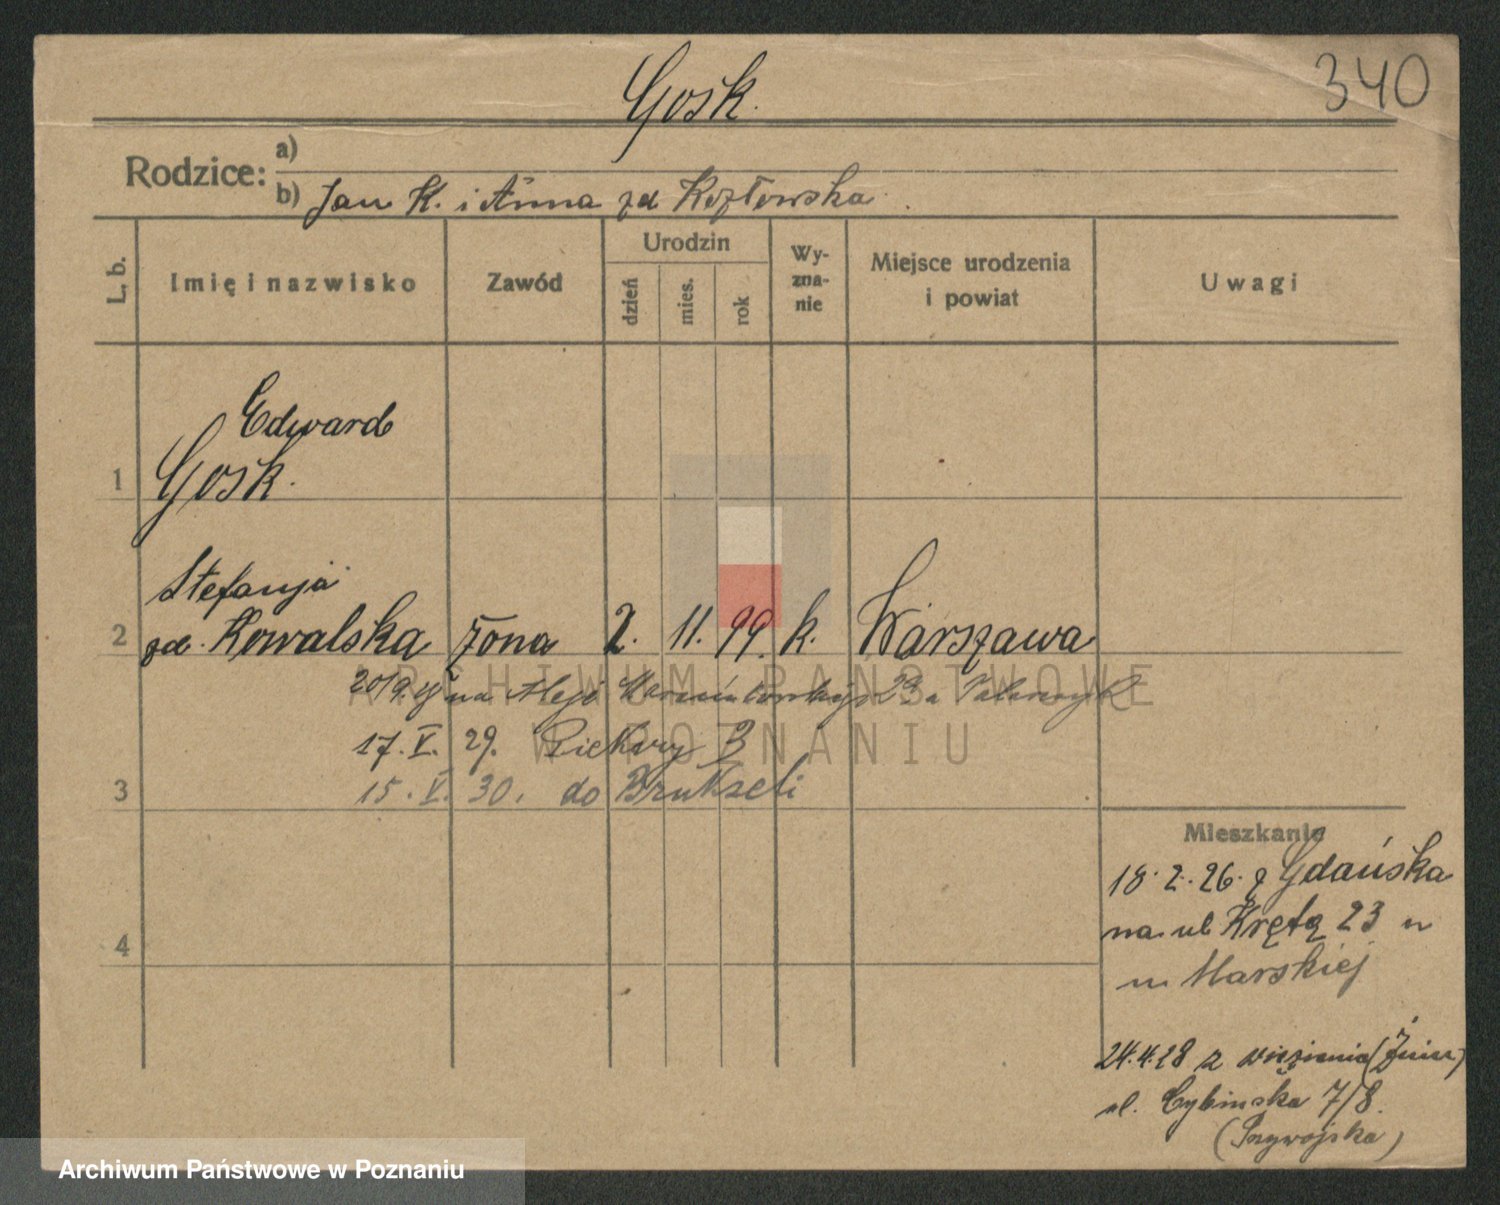 Gosk.
340
Rodzice:
a)
b) Jan K. i Anna zd Kozłowska
L. b.
Imię i nazwisko
Zawód
Urodzin
dzień
mies.
rok
Wy-
zna-
nie
Miejsce urodzenia
i powiat
Uwagi
Edward
1 Gosk.
Stefanja
2 zd. Kowalska żona 2. 11. 99. k. Warszawa
20/9. na Aleje Marcinkowskiego 23
17. V. 29. Piekary 3
3 15. V. 30. do Brukseli
4
Mieszkanie
18. 2. 26. z Gdańska
na ul Krętą 23 u
Marskiej
24.4.28 z więzienia
ul. Cybińska 7/8.
ARCHIWUM PAŃSTWOWE
W POZNANIU
Archiwum Państwowe w Poznaniu